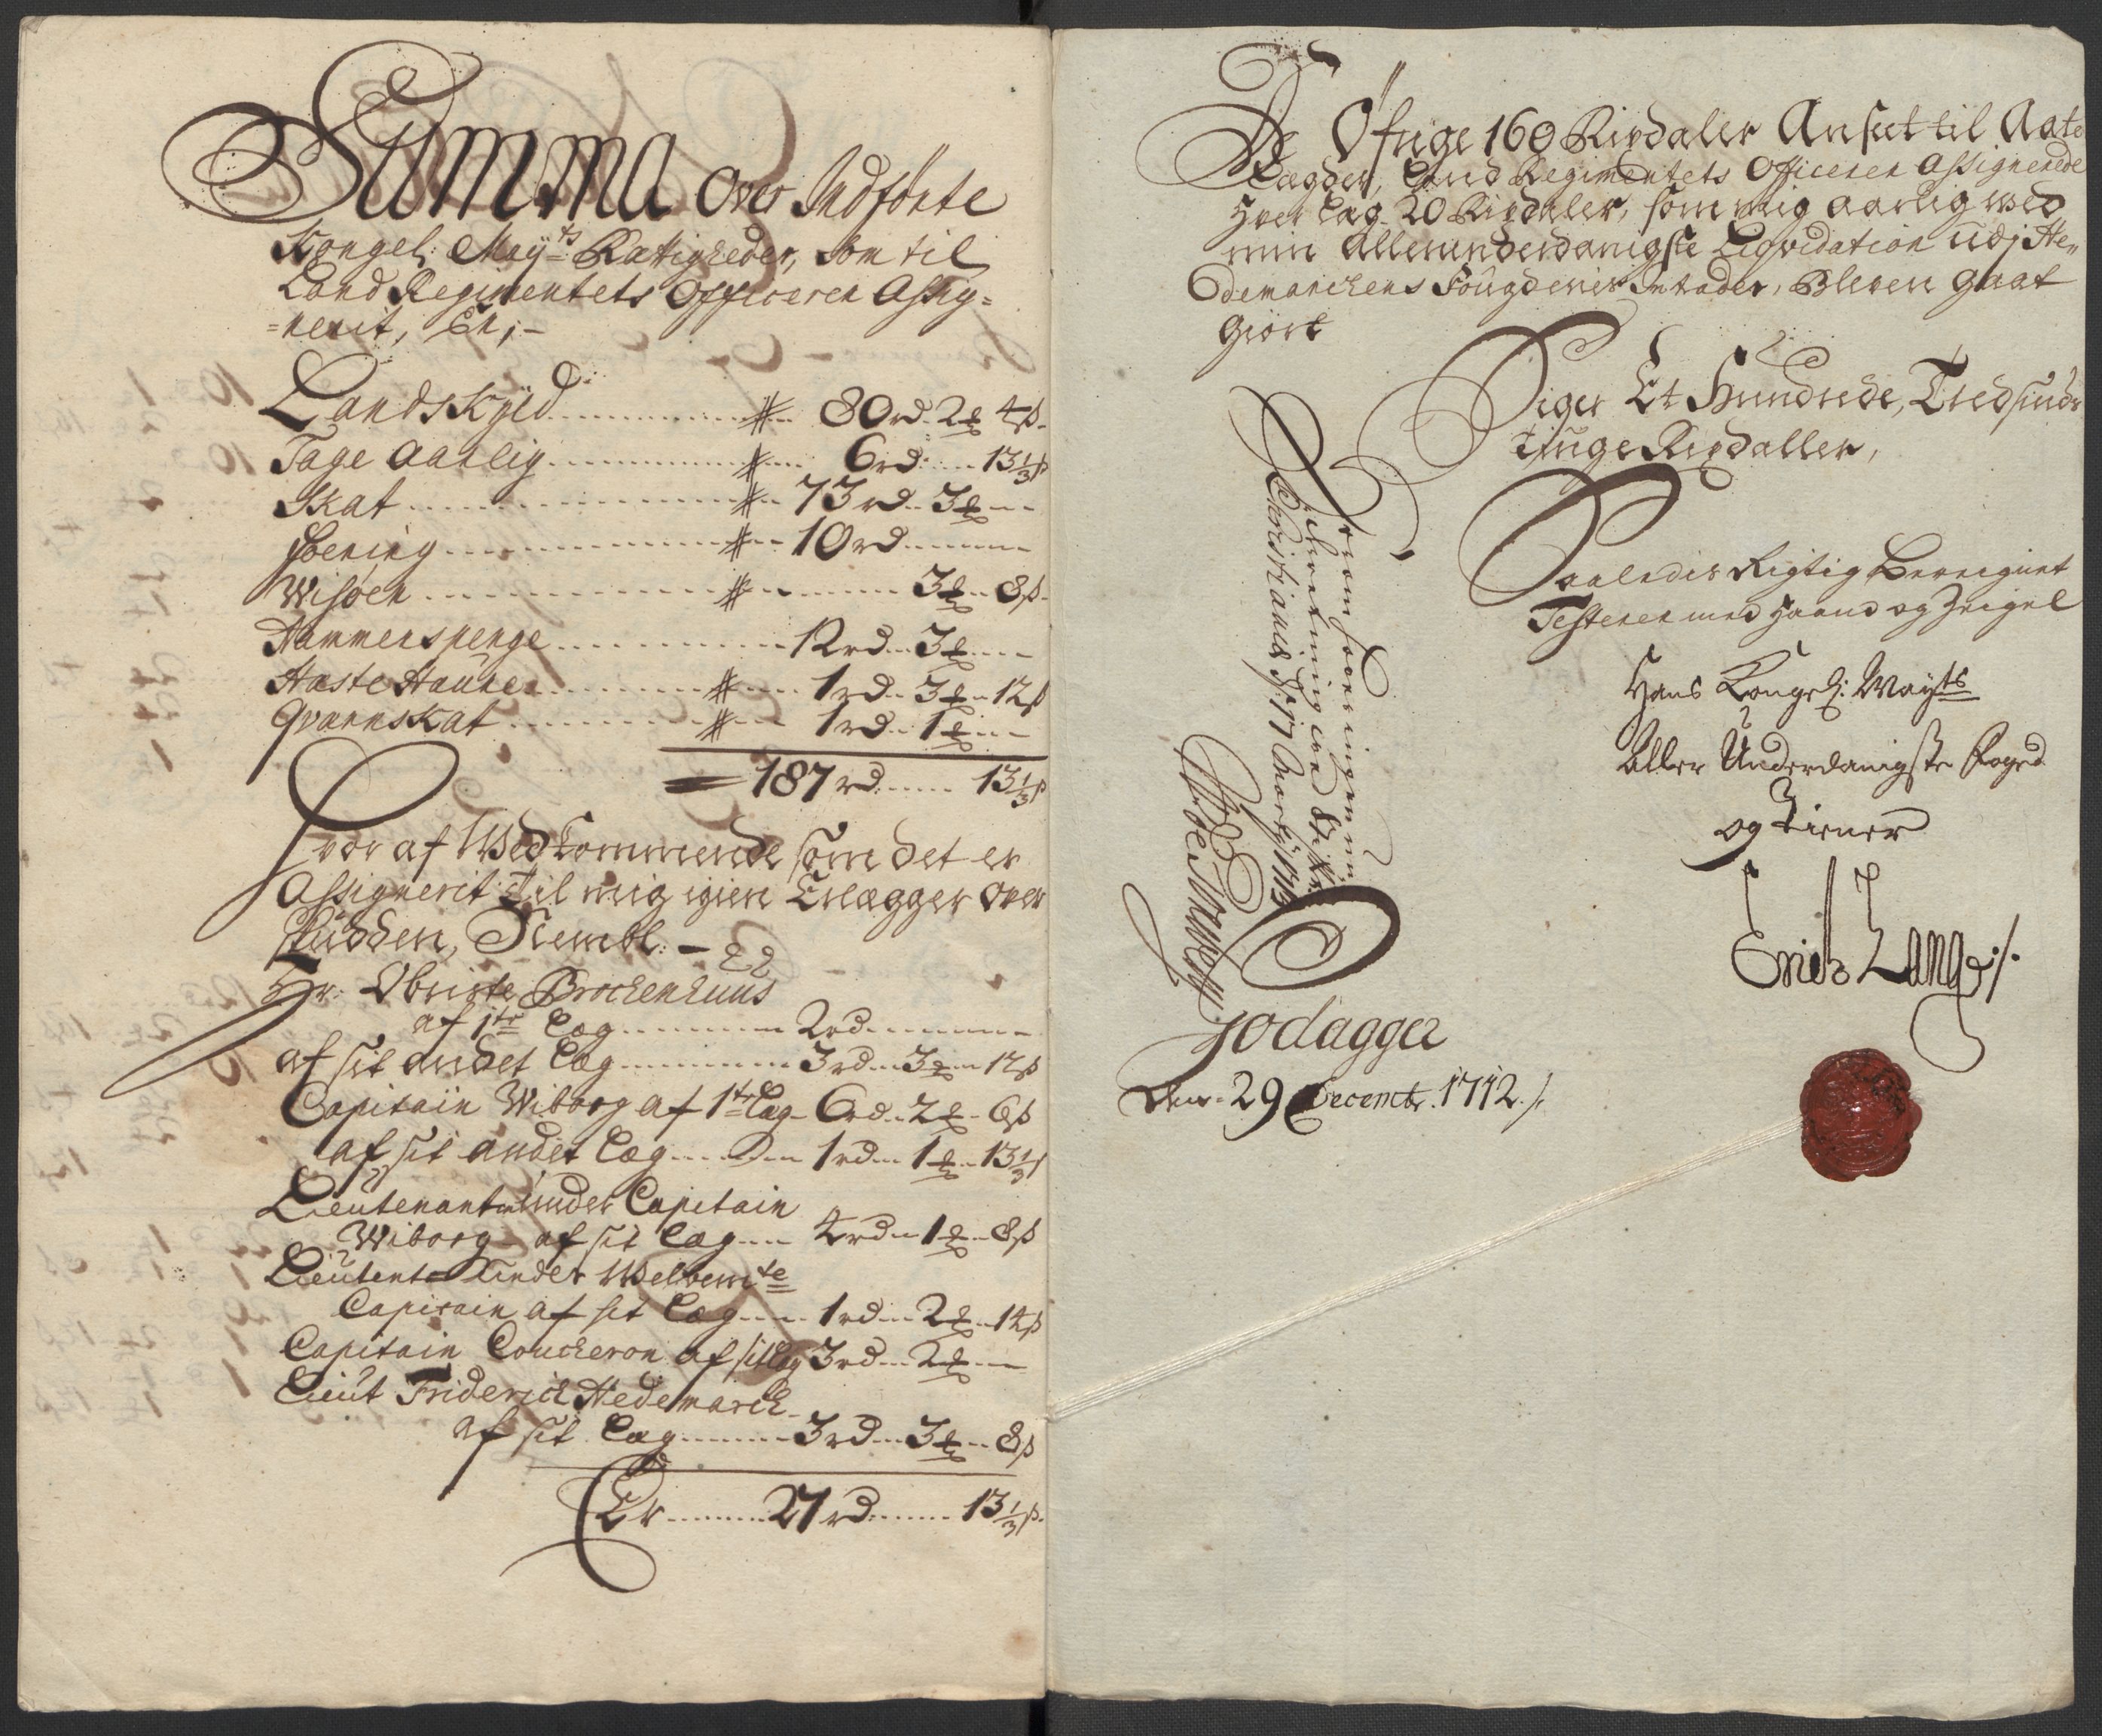 Summa over Indførte
Kongel: Maÿ:ts Rætigheder, som til
Land Regimentets Officerer Assig=
=nerit, Er;-
Landskÿld ... # .. 80 rd. 2 ℔ 4 ß.
Tage Aarlig ... # ... 6 rd: .... 13⅓ ß
Skat ... # .. 73 rd. 3 ℔ --
foering ... # .. 10 rd ...
Wisøer ... # ... 3 ℔ .. 8 ß.
Hammerspenge ... 12 rd .. 3 ℔ ...
Hæste Haufne ... # ... 1 rd. 3 ℔ - 12 ß
Qværnskat ... # ... 1 rd. 1 ℔ ..
187 rd: ..... 13⅓ ß
hvor af Wedkommende som det er
Assignerit til mig igien Erlægger over
skudden, Nembl: -
Hr: Obriste Brochenhuus
af 1te Læg ... 2 rd ...
af sit andet Læg ... 3 rd .. 3 ℔ .. 12 ß
Capitain Wiborg af 1te Læg - 6 rd .. 2 ℔ - 6 ß
af sit andet Læg ... 1 rd .. 1 ℔ .. 13⅓ ß
Lieutenant under Capitain
Wiborg af sit Læg ... 4 rd .. 1 ℔ .. 8 ß
Lieutent under Welbemte
Capitain af sit Læg ... 1 rd .. 2 ℔ .. 14 ß
Capitain Coucheron af sit Læg 3 rd ... 2 ℔ --
Lieut Friderich Hedemarck
af sit Læg ... 3 rd .. 3 ℔ .. 8 ß
Er ... 27 rd: ... 13⅓ ß.
De Øfrige 160 Rixdaler Ansæt til Aate
Lægder, Land Regimentets Officerer Assignerede
Hver Læg 20 Rixdaler, som mig aarlig wed
min Allerunderdanigste Liqvidation udj He„
demarchens Fougderies Intrader, Bleven gaat
Giørt
Siger Et Hundrede, Tredsinds
tiuge Rixdaller,
Saaledis Rigtig Beregnet
Testerer med Haand og Zeigel
Hans Kongel: Maÿts
Aller Underdanigste Foged
og Tiener
Erich Lange ./.
Christiania d: 17
Jodagger
Den- 29 Decembr. 1712./.